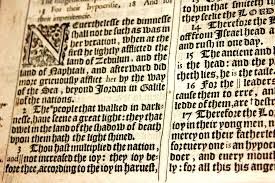 for Hypocrisie, 18 And for
NEuerthelesse the dimnesse
shall not be such as was in
her vexation, when at the
first he lightly afflicted the
land of Zebulun, and the
land of Naphtali, and afterward did
more grieuously afflict her by the way
of the Sea, beyond Iordan in Galile
of the nations.
2 The people that walked in dark-
nesse, haue seene a great light: they that
dwel in the land of the shadow of death
vpon them hath the light shined.
3 Thou hast multiplied the nation,
and not increased the ioy: they ioy be-
fore thee, according to the ioy in haruest,
14 Therefore the
off from Israel head a
and rush in one day.
15 The ancient and
is the head: and the
lies, he is the taile.
16 For the leaders
cause them to erre, and
ledde of them, are
17 Therefore the Lor
ioy in their yong men
mercy on their
for euery one is an hypocr
doer, and euery mouth
ly: for all this his anger